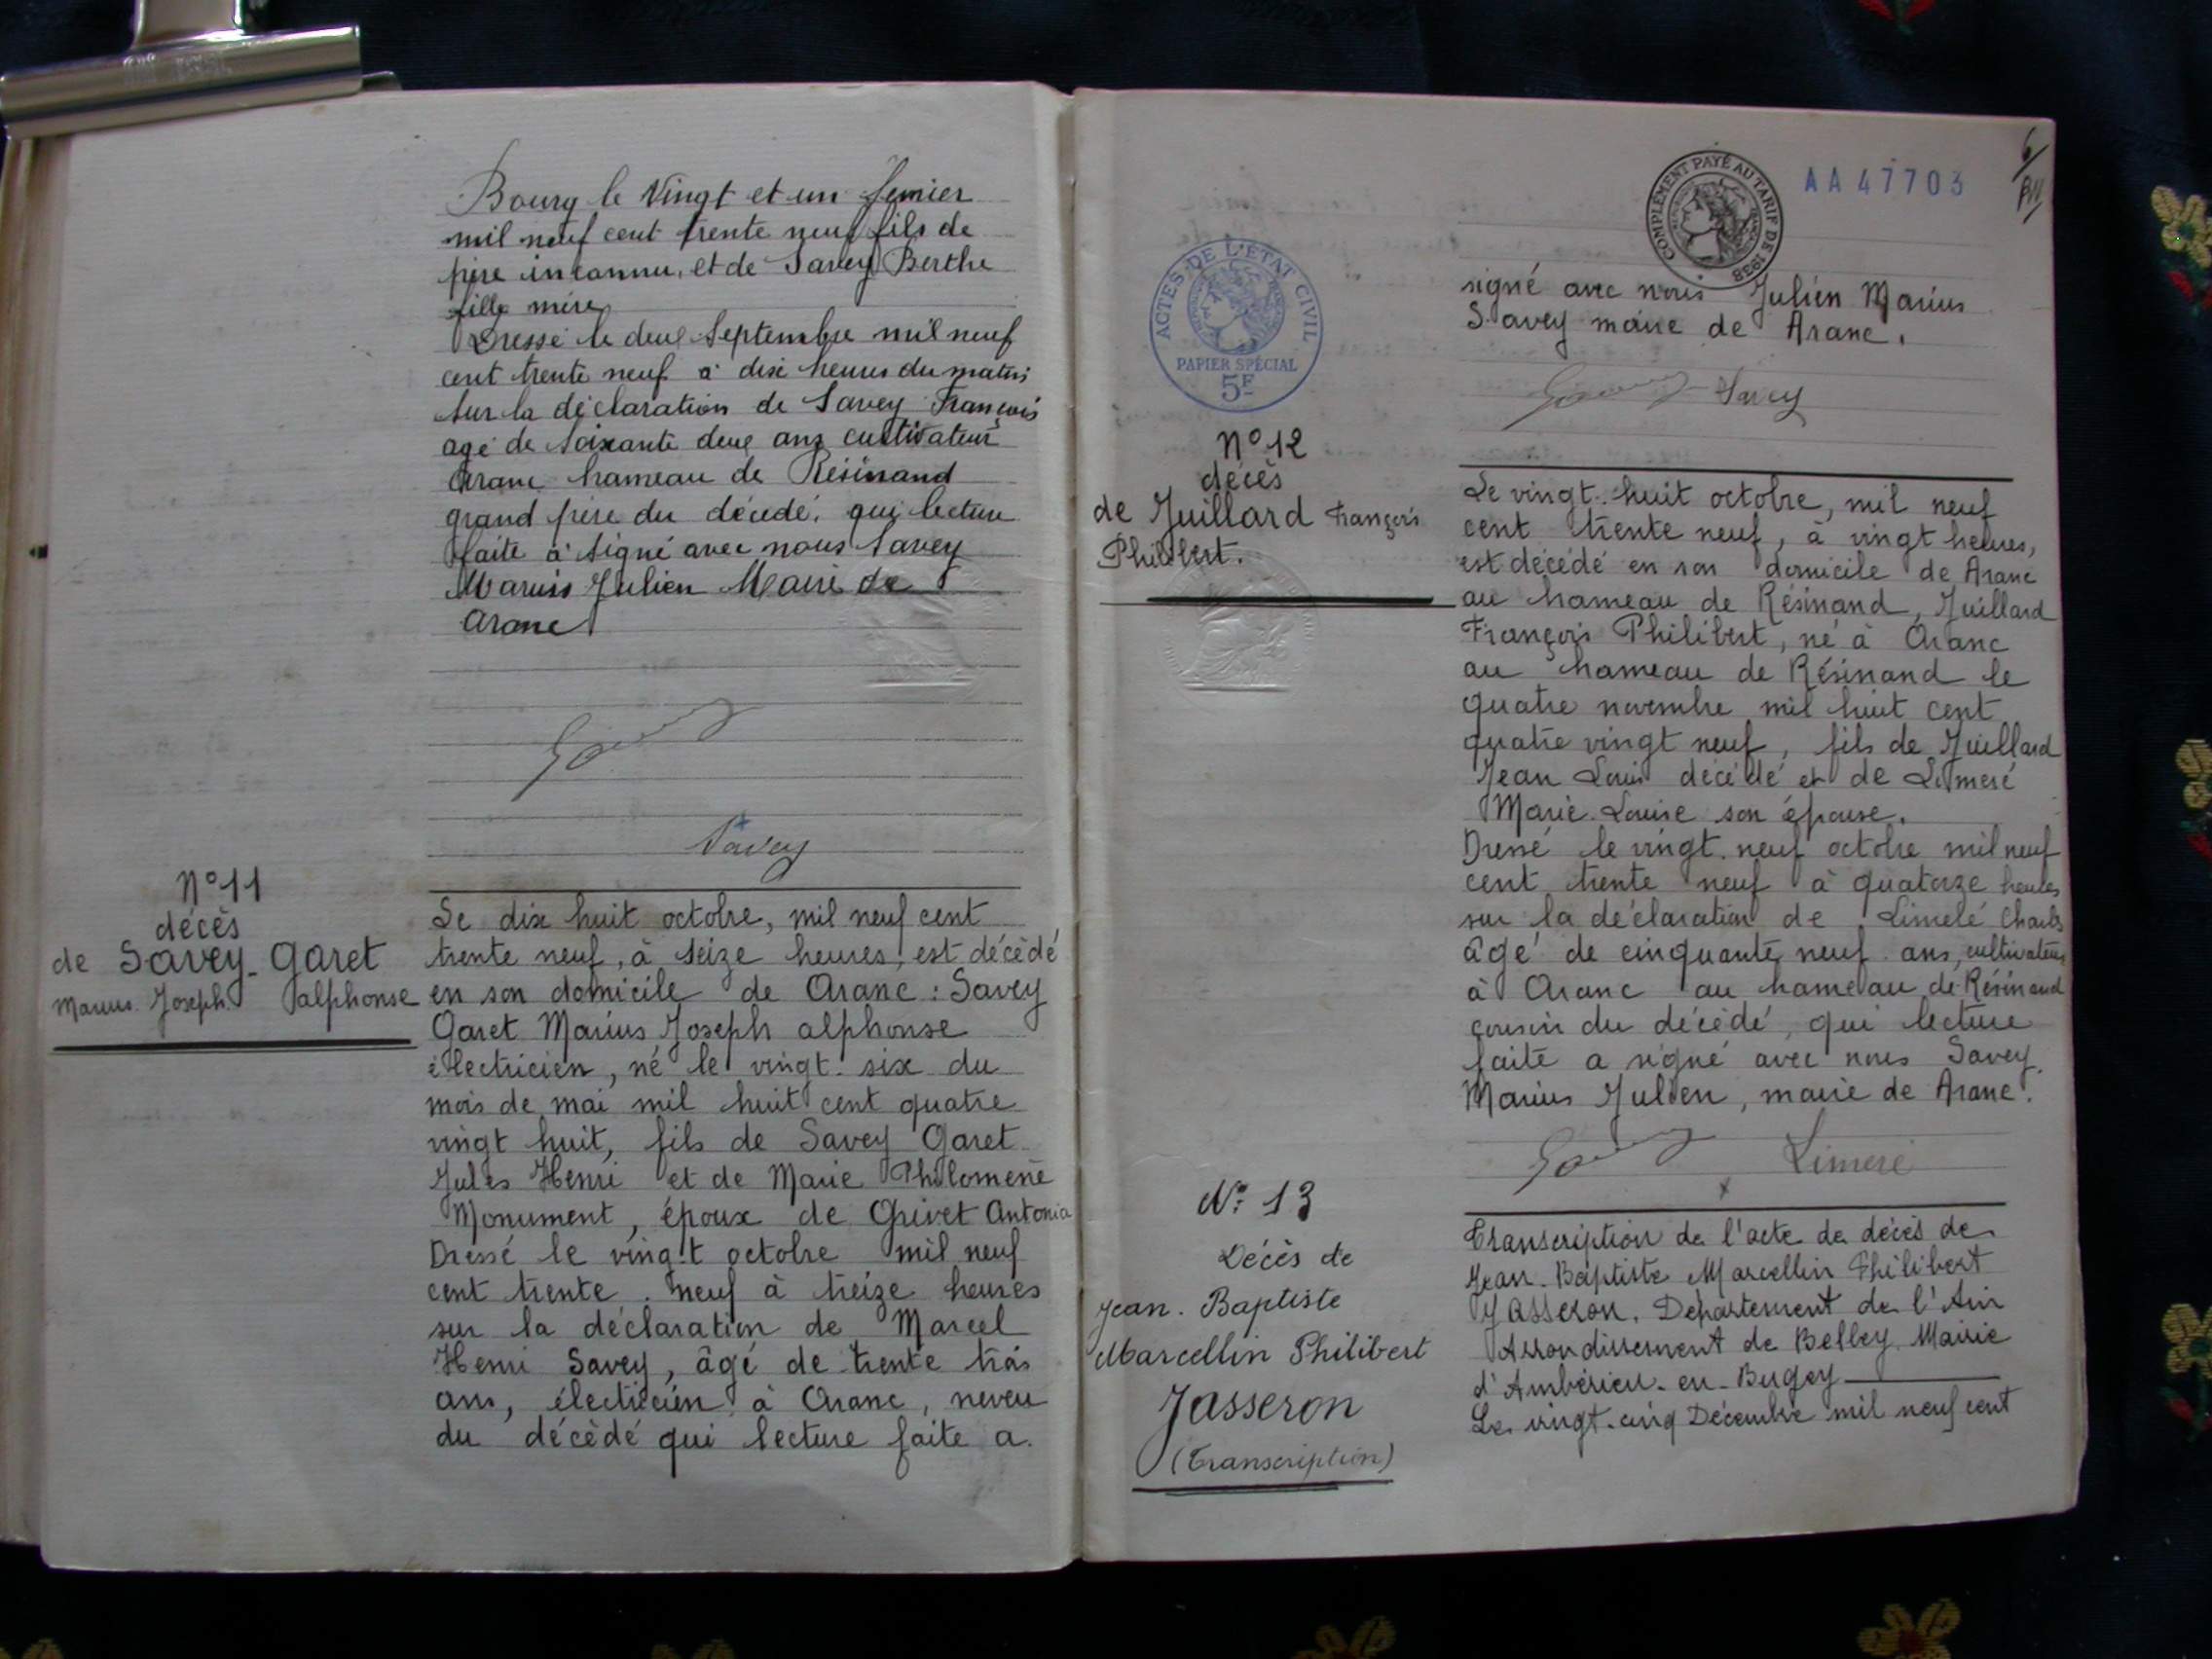 Bourg le Vingt et un
mil neuf cent trente neuf fils de
père inconnu, et de Savey Berthe
fille mère
Dressé le deux Septembre mil neuf
cent trente neuf à dix heures du matin
sur la déclaration de Savey François
agé de soixante deux ans cultivateur
Aranc hameau de Résinand
grand père du décédé, qui lecture
faite à signé avec nous Savey
Marius Julien Maire de
Aranc
Savey
N° 11
décès
de Savey-Garet
Marius Joseph alphonse
Le dix huit octobre, mil neuf cent
trente neuf, à seize heures, est décédé
en son domicile de Aranc : Savey
Garet Marius Joseph alphonse
électricien, né le vingt-six du
mois de mai mil huit cent quatre
vingt huit, fils de Savey Garet
Jules Henri et de Marie Philomène
Monument, époux de Grivet Antonia
Dressé le vingt octobre mil neuf
cent trente-neuf à treize heures
sur la déclaration de Marcel
Henri Savey, âgé de trente trois
ans, électricien à Aranc, neveu
du décédé qui lecture faite a
COMPLÉMENT PAYÉ AU TARIF DE 1938
AA 47703
6
ACTES DE L'ÉTAT CIVIL
PAPIER SPÉCIAL
5F
signé avec nous Julien Marius
Savey maire de Aranc.
Savey
N° 12
décès
de Juillard François
Philibert.
Le vingt-huit octobre, mil neuf
cent trente neuf, à vingt heures,
est décédé en son domicile de Aranc
au hameau de Résinand, Juillard
François Philibert, né à Aranc
au hameau de Résinand le
quatre novembre mil huit cent
quatre vingt neuf, fils de Juillard
Jean Louis décédé et de Limeré
Marie-Louise son épouse.
Dressé le vingt-neuf octobre mil neuf
cent trente neuf à quatorze heures
sur la déclaration de Limelé Charles
âgé de cinquante neuf ans, cultivateur
à Aranc au hameau de Résinand
cousin du décédé, qui lecture
faite a signé avec nous Savey
Marius Julien, maire de Aranc.
Limeré
N° 13
Décès de
Jean-Baptiste
Marcellin Philibert
Jasseron
(Transcription)
Transcription de l'acte de décès de
Jean-Baptiste Marcellin Philibert
Jasseron. Département de l'Ain
Arrondissement de Belley. Mairie
d'Ambérieu-en-Bugey
Le vingt-cinq Décembre mil neuf cent